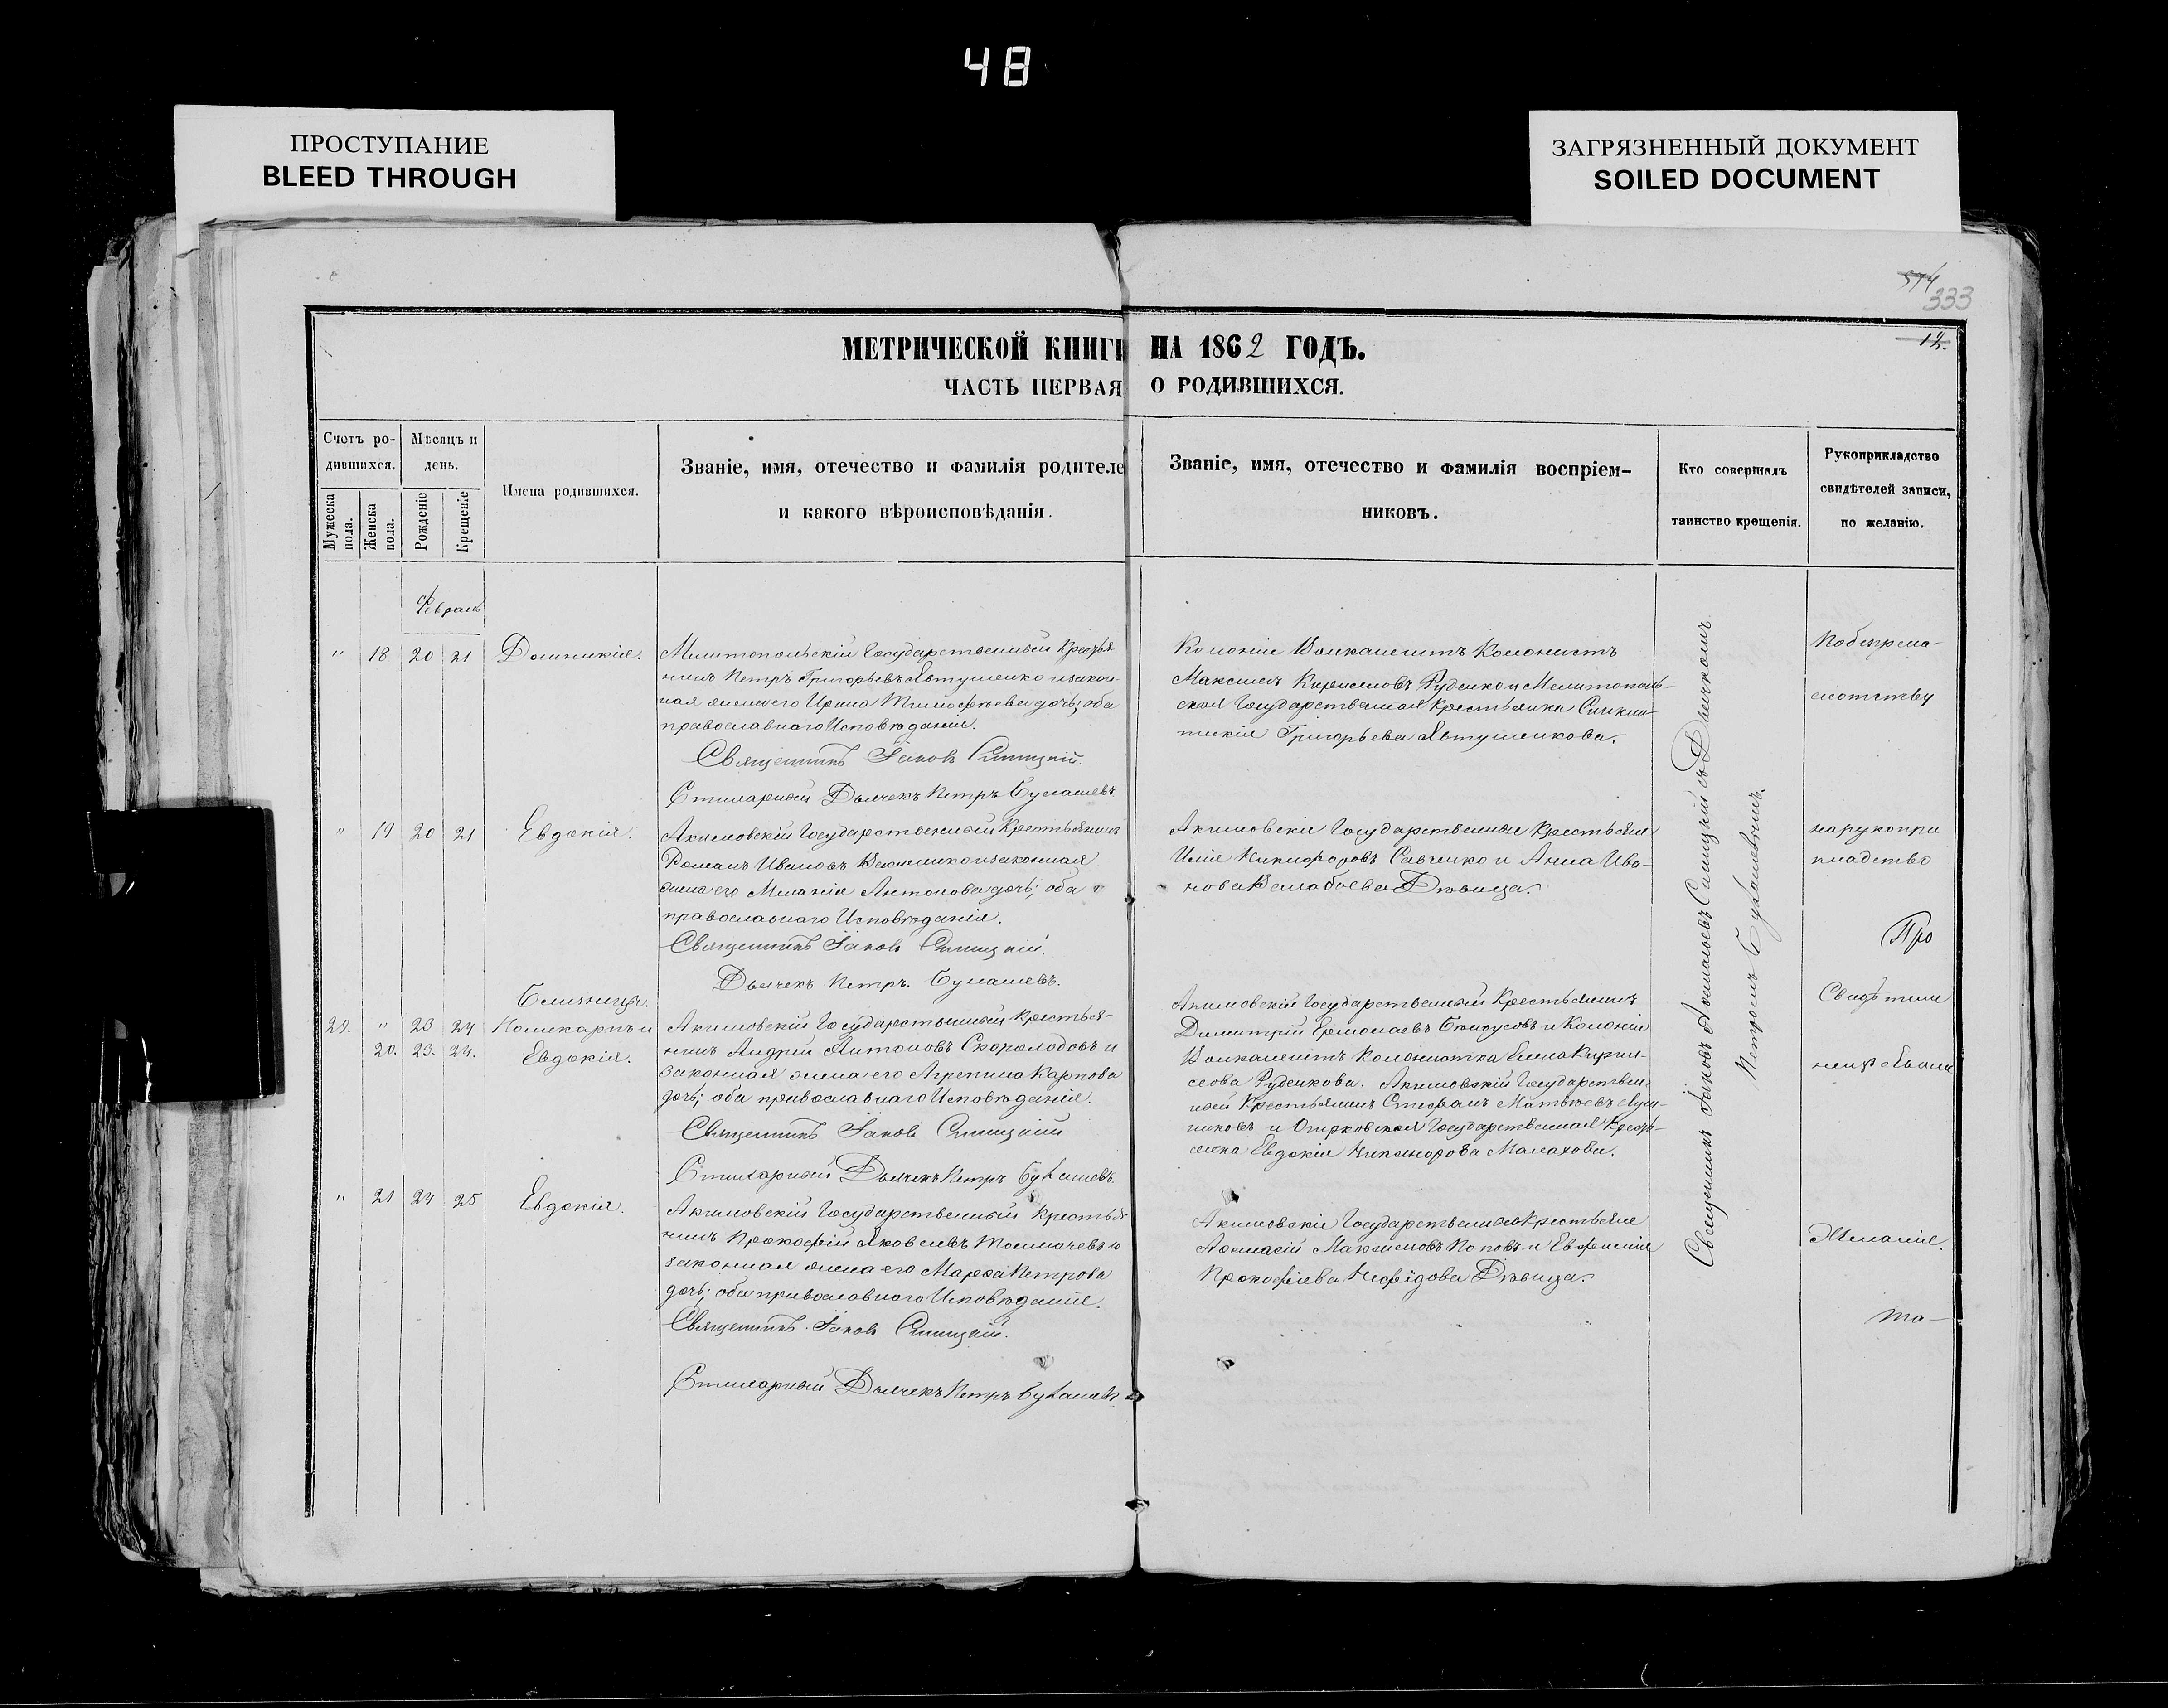 48
ПРОСТУПАНИЕ
BLEED THROUGH
ЗАГРЯЗНЕННЫЙ ДОКУМЕНТ
SOILED DOCUMENT
574
333
12.
МЕТРИЧЕСКОЙ КНИГИ НА 1862 ГОДЪ.
ЧАСТЬ ПЕРВАЯ О РОДИВШИХСЯ.
Счетъ ро-
дившихся.
Мужеска
пола.
Женска
пола.
Мѣсяцъ и
день.
Рожденіе
Крещеніе
Имена родившихся.
Званіе, имя, отечество и фамилія родителе
и какого вѣроисповѣданія.
Званіе, имя, отечество и фамилія воспріем-
никовъ.
Кто совершалъ
таинство крещенія.
Рукоприкладство
свидѣтелей записи,
по желанію.
Февраль
" 18 20 21 Домникія.
Мелитопольскій Государственный Крестья
нинъ Петръ Григорьевъ Явтушенко и закон-
ная жена его Ирина Тимофѣева дочь; оба
православнаго Исповѣданія.
Священникъ Іаковъ Синицкій.
Стихарный Дьячекъ Петръ
Колоніи Колонистъ
Максимъ Руденко и Мелитополь-
ская Государственная Крестьянка Синкли-
тикія Григорьева Явтушенкова.
" 19 20 21 Евдокія.
Акимовскій Государственный Крестьянинъ
Романъ Ивановъ и законная
жена его Меланія Антонова дочь; оба
православнаго Исповѣданія.
Священникъ Іаковъ Синицкій.
Дьячекъ Петръ
Акимовскіе Государственные Крестьяне
Илія Никифоровъ Савченко и Анна Ива-
нова Дѣвица.
Близнецы.
22. " 23 24 Поликарпъ и
20. 23. 24. Евдокія.
Акимовскій Государственный Крестья-
нинъ Андрей Антоновъ Скороходовъ и
законная жена его Агрепина Карпова
дочь; оба православнаго Исповѣданія.
Священникъ Іаковъ Синицкій
Стихарный Дьячекъ Петръ
Акимовскій Государственный Крестьянинъ
Димитрій Ермолаевъ Бѣлоусовъ и Колоніи
Колонистка Елена
Руденкова. Акимовскій Государствен-
ный Крестьянинъ Стефанъ Матвѣевъ
и Государственная Крестья-
Евдокія Никанорова Малахова.
" 21 24 25 Евдокія.
Акимовскій Государственный Крестья-
нинъ Прокофій Яковлевъ Толмачевъ и
законная жена его Марѳа Петрова
дочь; оба православнаго Исповѣданія.
Священникъ Іаковъ Синицкій.
Стихарный Дьячекъ Петръ
Акимовскіе Государственные Крестьяне
Аѳанасій Максимовъ Поповъ и Евфимія
Прокофіева Нефідова Дѣвица.
Священникъ Іаковъ Синицкій съ Дьячкомъ
Петромъ
на рукопри
кладство
Про
Свидѣтели
Желанія.